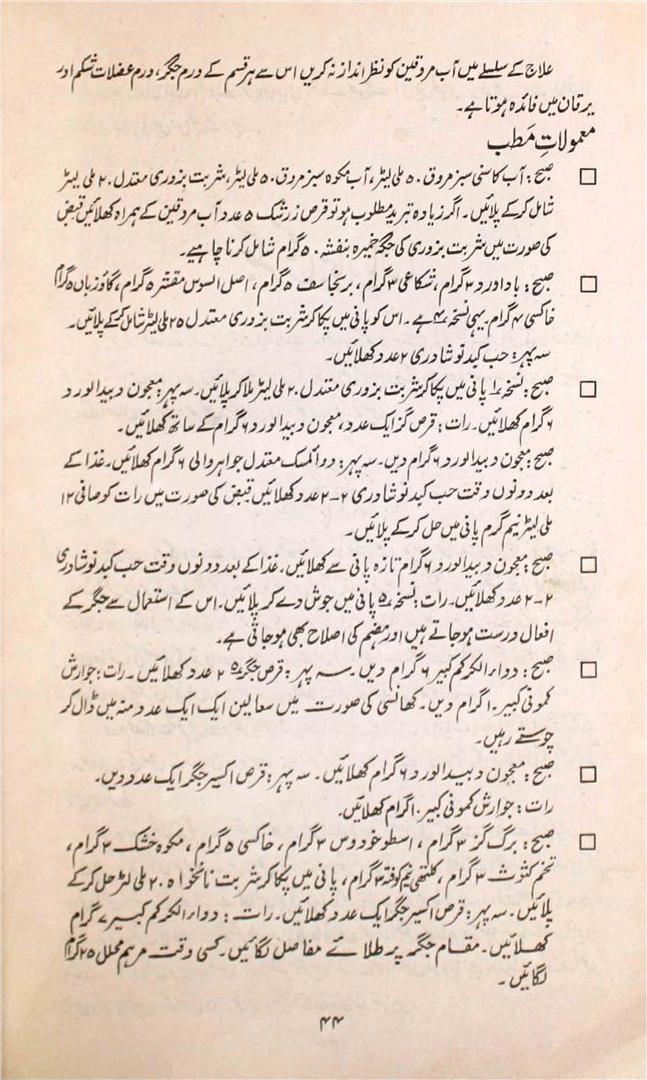 علاج کے سلسلے میں آب مروقین کو نظر انداز نہ کریں اس سے ہر قسم کے ورم جگر، ورم عضلات شکم اور
یرقان میں فائدہ ہوتا ہے۔
معمولاتِ مَطب
□ صبح: آب کاسنی سبز مروق ۵۰ ملی لیٹر، آب مکوہ سبز مروق ۵۰ ملی لیٹر، شربت بزوری معتدل ۲۰ ملی لیٹر
شامل کر کے پلائیں۔ اگر زیادہ تبرید مطلوب ہو تو قرص زرشک ۵ عدد آب مروقین کے ہمراہ کھلائیں قبض
کی صورت میں شربت بزوری کی جگہ خمیرہ بنفشہ ۵۰ گرام شامل کرنا چاہیے۔
□ صبح: باداورد ۳ گرام، شکاعی ۳ گرام، برنجاسف ۵ گرام، اصل السوس مقشر ۵ گرام، گاؤزباں ۵ گرام
خاکسی ۴ گرام یہی نسخہ ہے۔ اس کو پانی میں پکا کر شربت بزوری معتدل ۲۵ ملی لیٹر شامل کر کے پلائیں۔
سہ پہر: حب کبد نوشادری ۲ عدد کھلائیں۔
□ صبح: نسخہ پانی میں پکا کر شربت بزوری معتدل ۲۰ ملی لیٹر ملا کر پلائیں۔ سہ پہر: معجون دبیدالورد
۶ گرام کھلائیں۔ رات: قرص گز ایک عدد، معجون دبیدالورد ۶ گرام کے ساتھ کھلائیں۔
صبح: معجون دبیدالورد ۶ گرام دیں۔ سہ پہر: دوائمسک معتدل جواہر والی ۶ گرام کھلائیں۔ غذا کے
بعد دونوں وقت حب کبد نوشادری ۲-۲ عدد کھلائیں قبض کی صورت میں رات کو صافی ۱۲
ملی لیٹر نیم گرم پانی میں حل کر کے پلائیں۔
□ صبح: معجون دبیدالورد ۶ گرام تازہ پانی سے کھلائیں۔ غذا کے بعد دونوں وقت حب کبد نوشادری
۲-۲ عدد کھلائیں۔ رات: نسخہ ۵ پانی میں جوش دے کر پلائیں۔ اس کے استعمال سے جگر کے
افعال درست ہو جاتے ہیں اور ہضم کی اصلاح بھی ہو جاتی ہے۔
□ صبح: دوار الکرکم کبیر ۶ گرام دیں۔ سہ پہر: قرص جگر ۲ عدد کھلائیں۔ رات: جوارش
کمونی کبیر ۱۰ گرام دیں۔ کھانسی کی صورت میں سعالین ایک ایک عدد منہ میں ڈال کر
چوستے رہیں۔
□ صبح: معجون دبیدالورد ۶ گرام کھلائیں۔ سہ پہر: قرص اکسیر جگر ایک عدد دیں۔
رات: جوارش کمونی کبیر ۱۰ گرام کھلائیں۔
□ صبح: برگ گز ۳ گرام، اسطوخودوس ۳ گرام، خاکسی ۵ گرام، مکوہ خشک ۳ گرام،
تخم کثوث ۳ گرام، کلتھی نیم کوفتہ ۳ گرام، پانی میں پکا کر شربت نانخواہ ۲۰ ملی لٹر حل کر کے
پلائیں۔ سہ پہر: قرص اکسیر جگر ایک عدد کھلائیں۔ رات: دوار الکرکم کبیر ۷ گرام
کھلائیں۔ مقام جگر پر طلائے مفاصل لگائیں۔ کسی وقت مرہم محلل ۲۵ گرام
لگائیں۔
۴۴